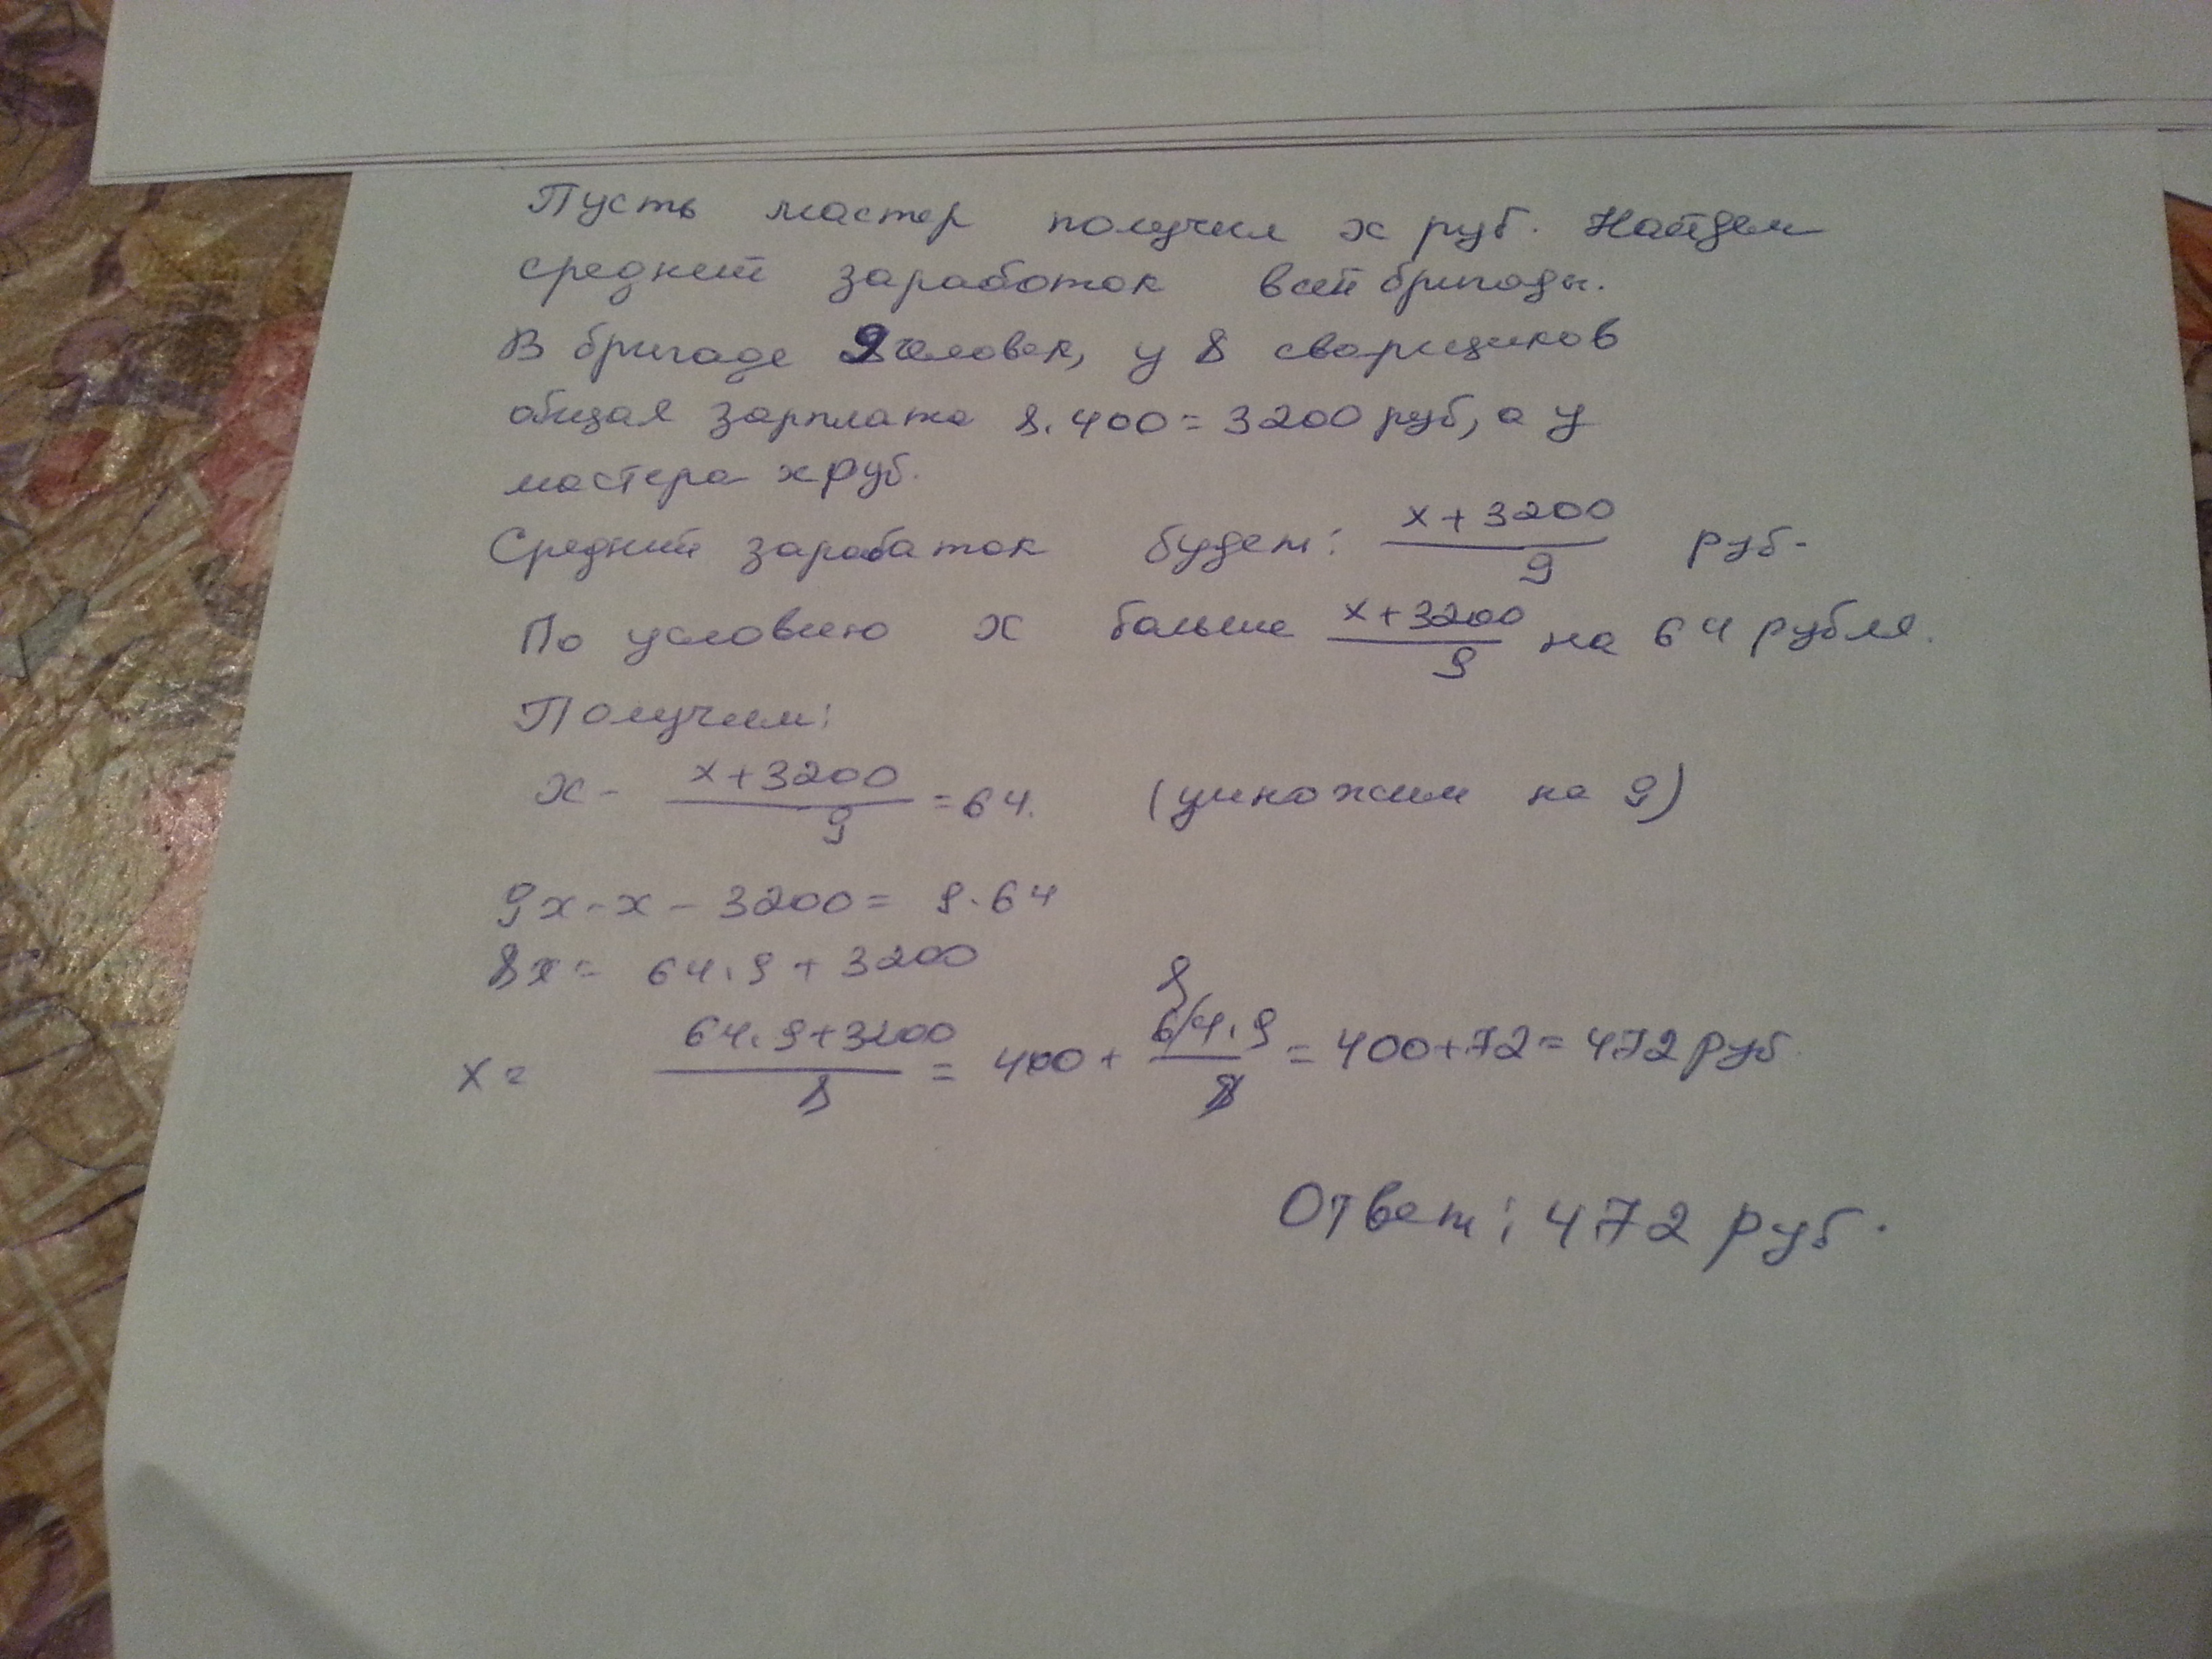 Пусть мастер получил x руб. Найдем
средний заработок всей бригады.
В бригаде 9 человек, у 8 сварщиков
общая зарплата 8.400=3200 руб, а у
мастера x руб.
Средний зарабаток будет: (x+3200)/9 руб.
По условию x больше (x+3200)/9 на 64 рубля.
Получим:
x - (x+3200)/9 = 64. (умножим на 9)
9x-x-3200=9.64
8x= 64.9+3200
x= (64.9+3200)/8 = 400 + (64.9)/8 = 400+72=472 руб.
Ответ: 472 руб.